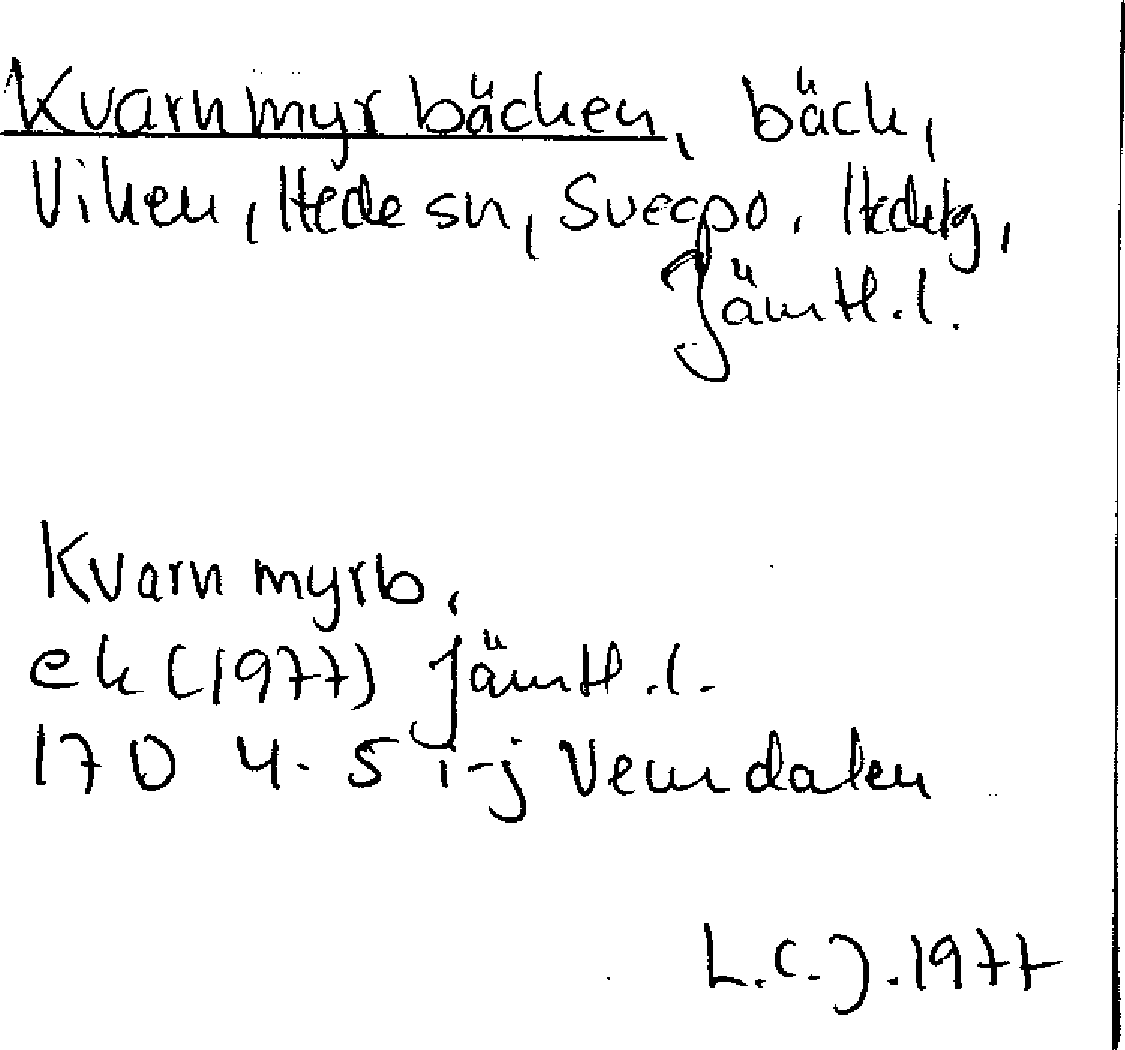 Kvarnmyrbäcken, bäck,
Viken, Hede sn, Svegpo. Hedetg,
Jämtl.l.
Kvarnmyrb.
ek (1977) Jämtl.l.
17D 4-5 i-j Vemdalen
L.C.J. 1977